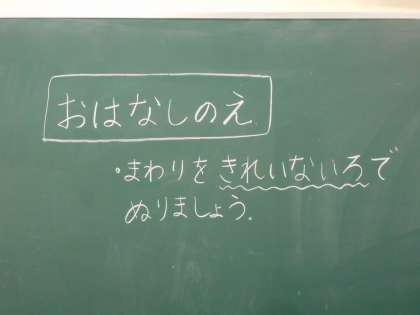 おはなしのえ
・まわりをきれいないろで
ぬりましょう.